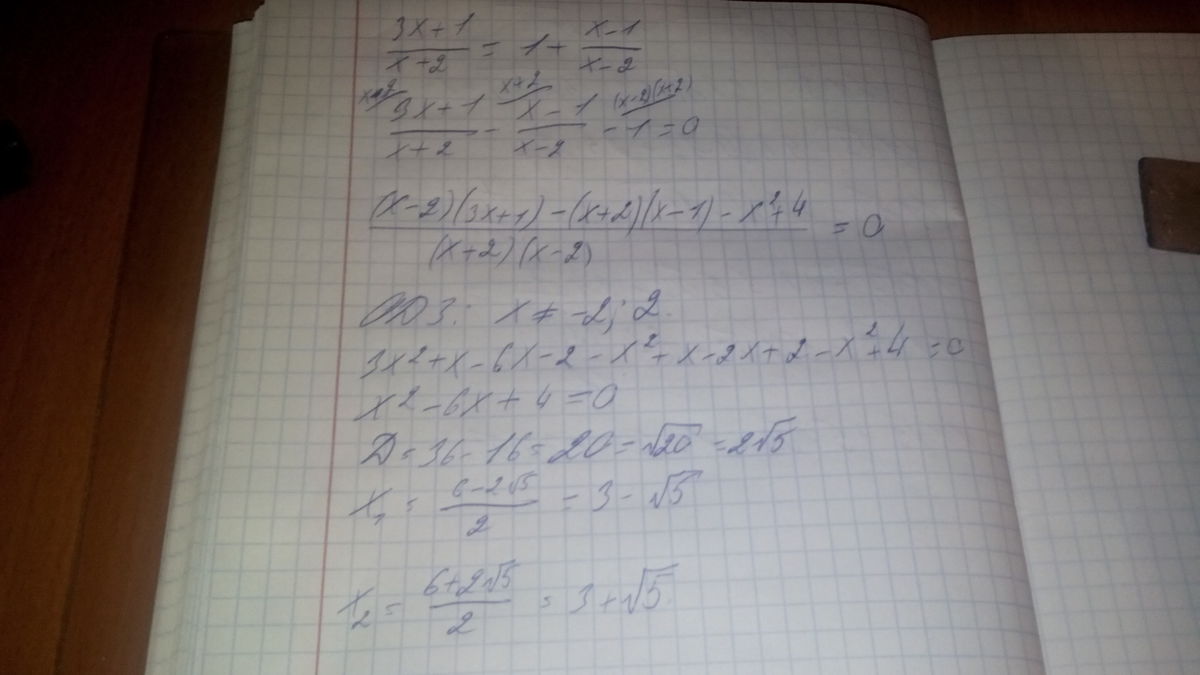 (3x+1)/(x+2) = 1 + (x-1)/(x-2)
x-2/ (3x+1)/(x+2) - x+2/ (x-1)/(x-2) - (x-2)(x+2)/ 1 = 0
((x-2)(3x+1) - (x+2)(x-1) - x²+4)/((x+2)(x-2)) = 0
ОДЗ: x ≠ -2; 2.
3x²+x-6x-2-x²+x-2x+2-x²+4=0
x²-6x+4=0
Д=36-16=20=√20=2√5
x₁ = (6-2√5)/2 = 3-√5
x₂ = (6+2√5)/2 = 3+√5.